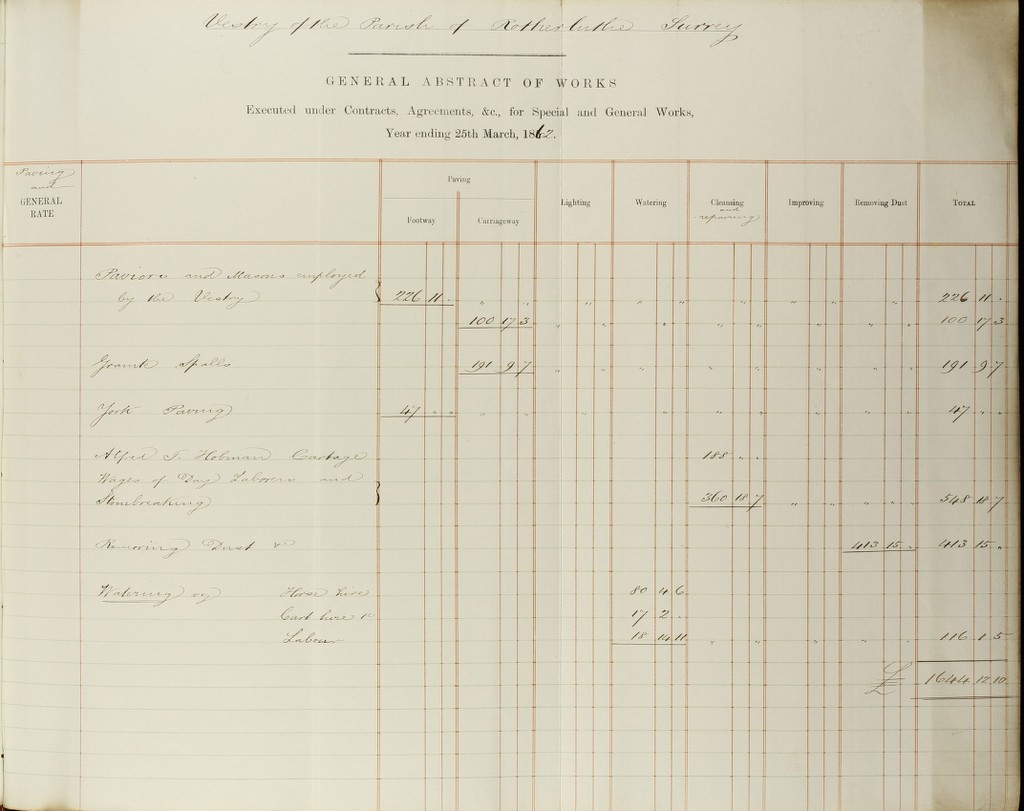 Vestry of the Parish of Rotherhithe Surrey
GENERAL ABSTRACT OF WORKS
Executed under Contracts, Agreements, &c., for Special and General Works,
Year ending 25th March, 1862.
Paving and GENERAL RATE
Paving
Footway Carriageway Lighting Watering Cleansing and repairing Improving Removing Dust TOTAL
Paviors and Masons employed
by the Vestry 226 11 . " " " " " " " " " " 226 11 .
100 17 3 " " " " " " " " 100 17 3
Granite Spalls 191 9 7 " " " " " " " " 191 9 7
York Paving 47 " " " " " " " " " " 47 " "
Alfred T. Hobman Cartage 188 " "
Wages of Day Laborers and
Stonebreaking 360 18 7 " " " " " 548 18 7
Removing Dust &c 413 15 " 413 15 "
Watering Horse hire 80 4 6
Cart hire 17 2 .
Labour 18 14 11 " " " " " " " 116 1 5
£ 1644 12 10